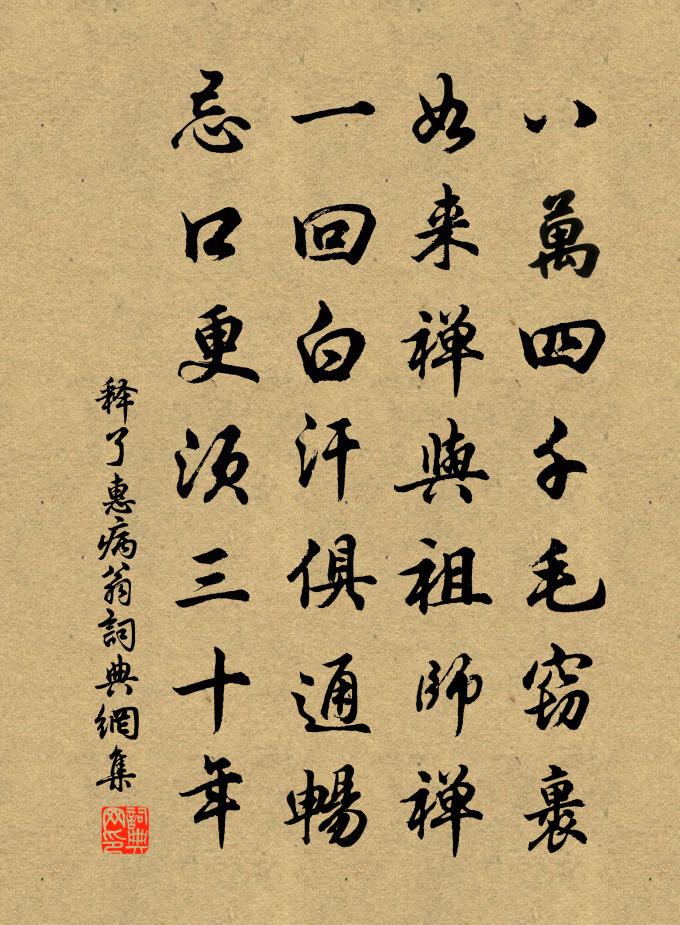 八萬四千毛窍裏
如来禅與祖師禅
一回白汗俱通暢
忌口更須三十年
释了惠病翁詞典網集
詞典网印